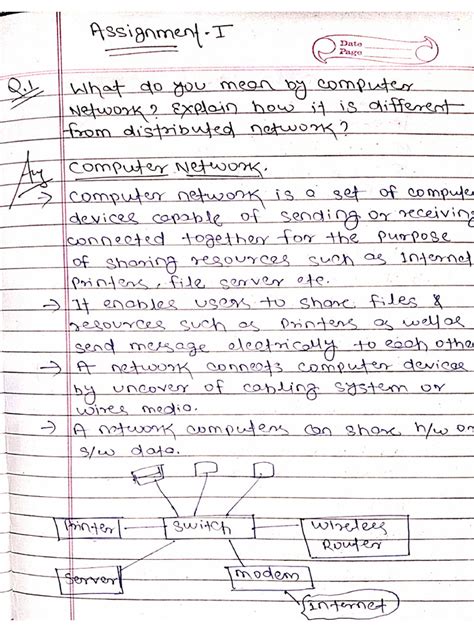 Assignment-I
Date
Page
Q.1 What do you mean by computer
Network? Explain how it is different
from distributed network?
Ans Computer Network.
→ computer network is a set of compute
devices capable of sending or receiving
connected together for the purpose
of sharing resources such as Internet
Printers, file server etc.
→ It enables users to share files &
resources such as Printers as well as
send message electrically to each other
→ A network connects computer devices
by uncover of cabling system or
wires media.
→ A network computers can share h/w or
s/w data.
Printer Switch Wireless
Router
Server Modem
Internet